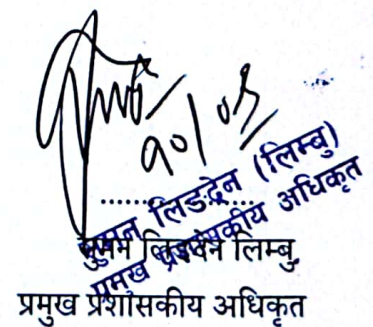 १०।०३
सुमन लिङदेन (लिम्बु)
प्रमुख प्रशासकीय अधिकृत
....................
सुमन लिङदेन लिम्बु
प्रमुख प्रशासकीय अधिकृत